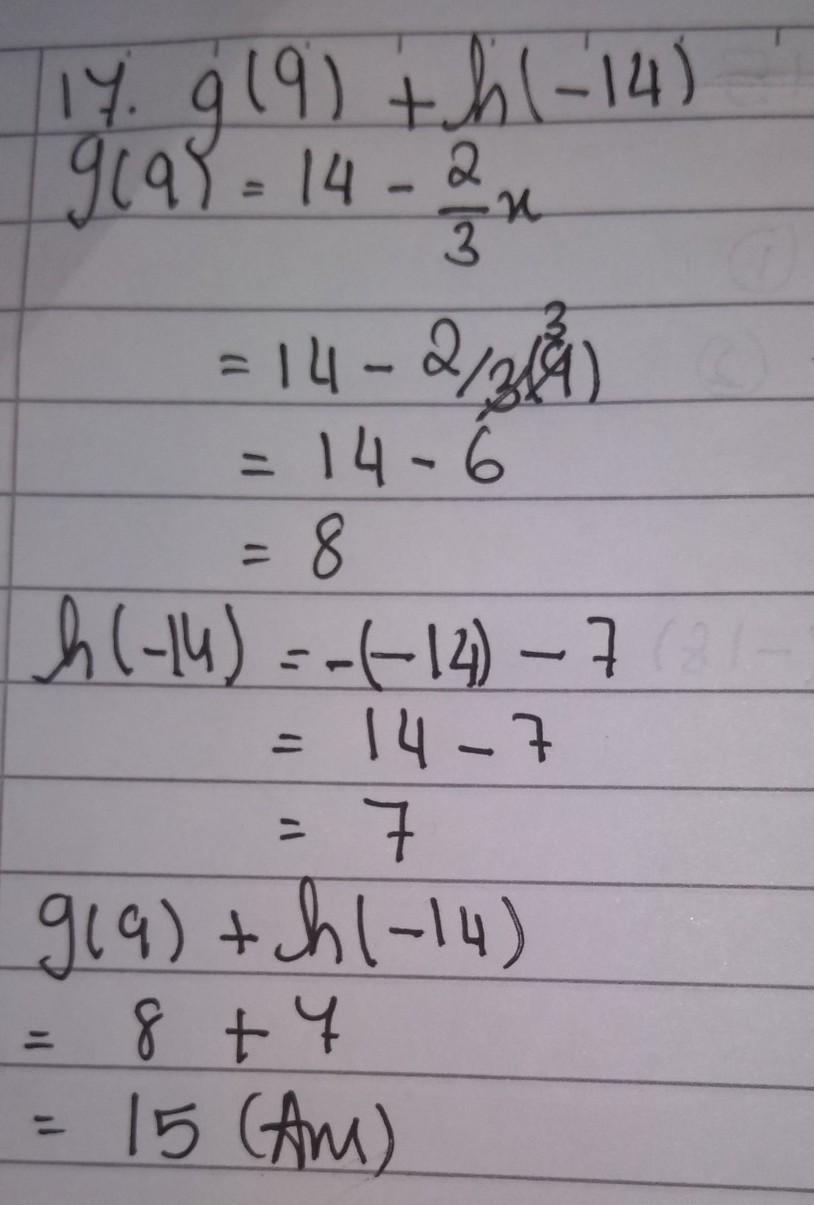 17. g(9) + h(-14)
g(9) = 14 - 2/3 x
= 14 - 2/3(9) 3
= 14 - 6
= 8
h(-14) = -(-14) - 7
= 14 - 7
= 7
g(9) + h(-14)
= 8 + 7
= 15 (Ans)